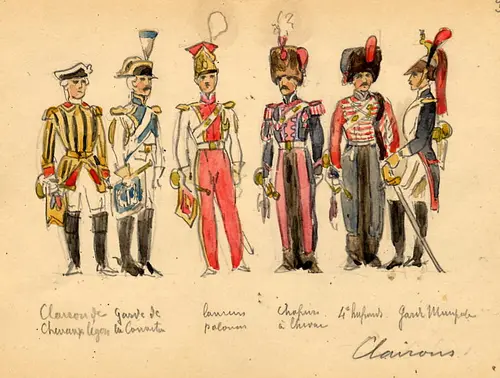 Clairon de
Chevaux légers
garde de
la Connétie
lanciers
polonais
Chasseurs
à Cheval
4e hussards
Garde Municipale
Clairons